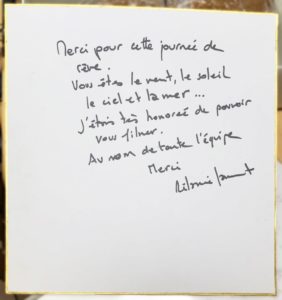 Merci pour cette journée de
rêve.
Vous êtes le vent, le soleil
le ciel et la mer...
J'étais très honorée de pouvoir
vous filmer.
Au nom de toute l'équipe
Merci